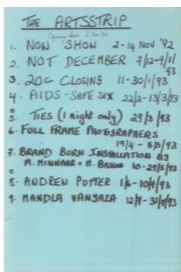 THE ARTSSTRIP
1. NOW SHOW 2-14 NOV '92
2. NOT DECEMBER 7/12-9/1/
93
3. 20C CLOSING 11-30/1/93
4. AIDS - SAFE SEX 22/2-13/3/93
5. TIES (1 night only) 29/3/93
6. FULL FRAME PHOTOGRAPHERS
19/4 - 8/5/93
7. BRAND BORN INSTALLATION BY
A. MINNAAR + M. 10-29/5/93
8. ANDREW POTTER 1/6-10/7/93
9. MANDLA VANYAZA 12/7-31/7/93